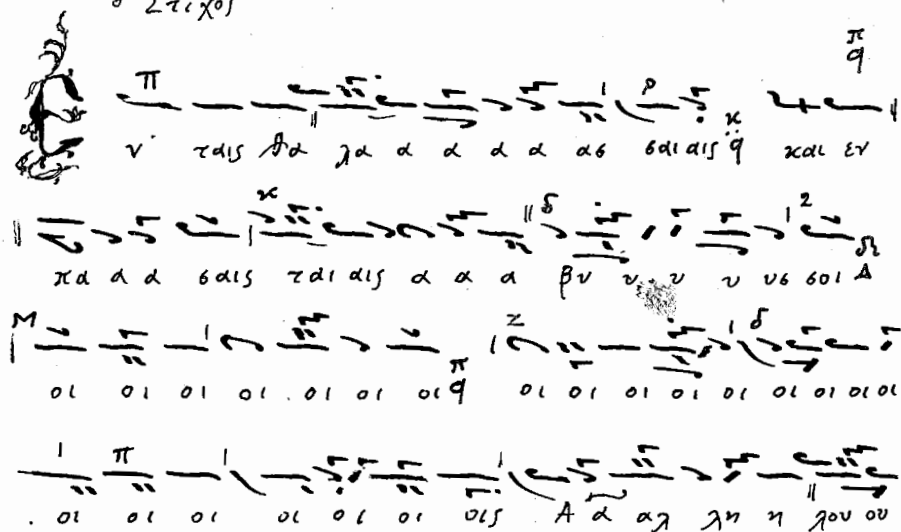 Στίχος
Εν ταις θα λα α α α α ασ σαι αις και εν
πα α α σαις ται αις α α α βυ υ υ υ υσ σοι
οι οι οι οι οι οι οι οι οι οι οι οι οι οι οι οι
οι οι οι οι οι οι οις Α α αλ λη η λου ου